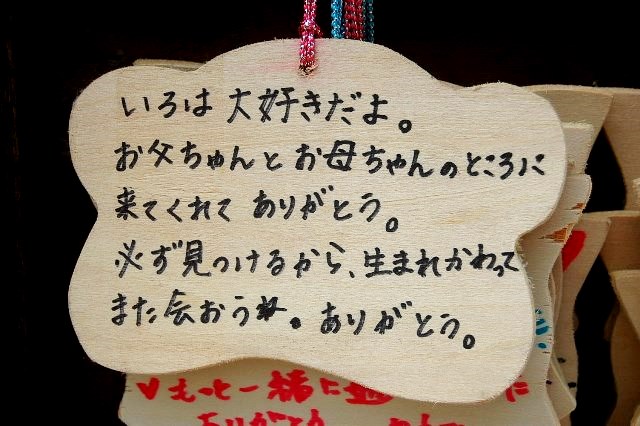 いろは大好きだよ。
お父ちゃんとお母ちゃんのところに
来てくれてありがとう。
必ず見つけるから、生まれかわって
また会おうね。ありがとう。
もっと一緒に
ありがとう